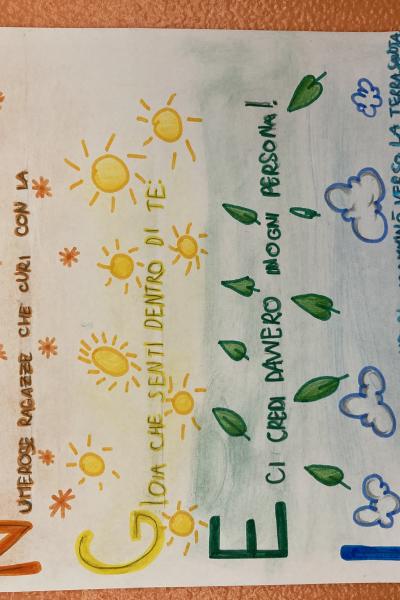 NUMEROSE RAGAZZE CHE CURI CON LA
GIOIA CHE SENTI DENTRO DI TE:
E CI CREDI DAVVERO INOGNI PERSONA!
I VERSO LA TERRA SANTA